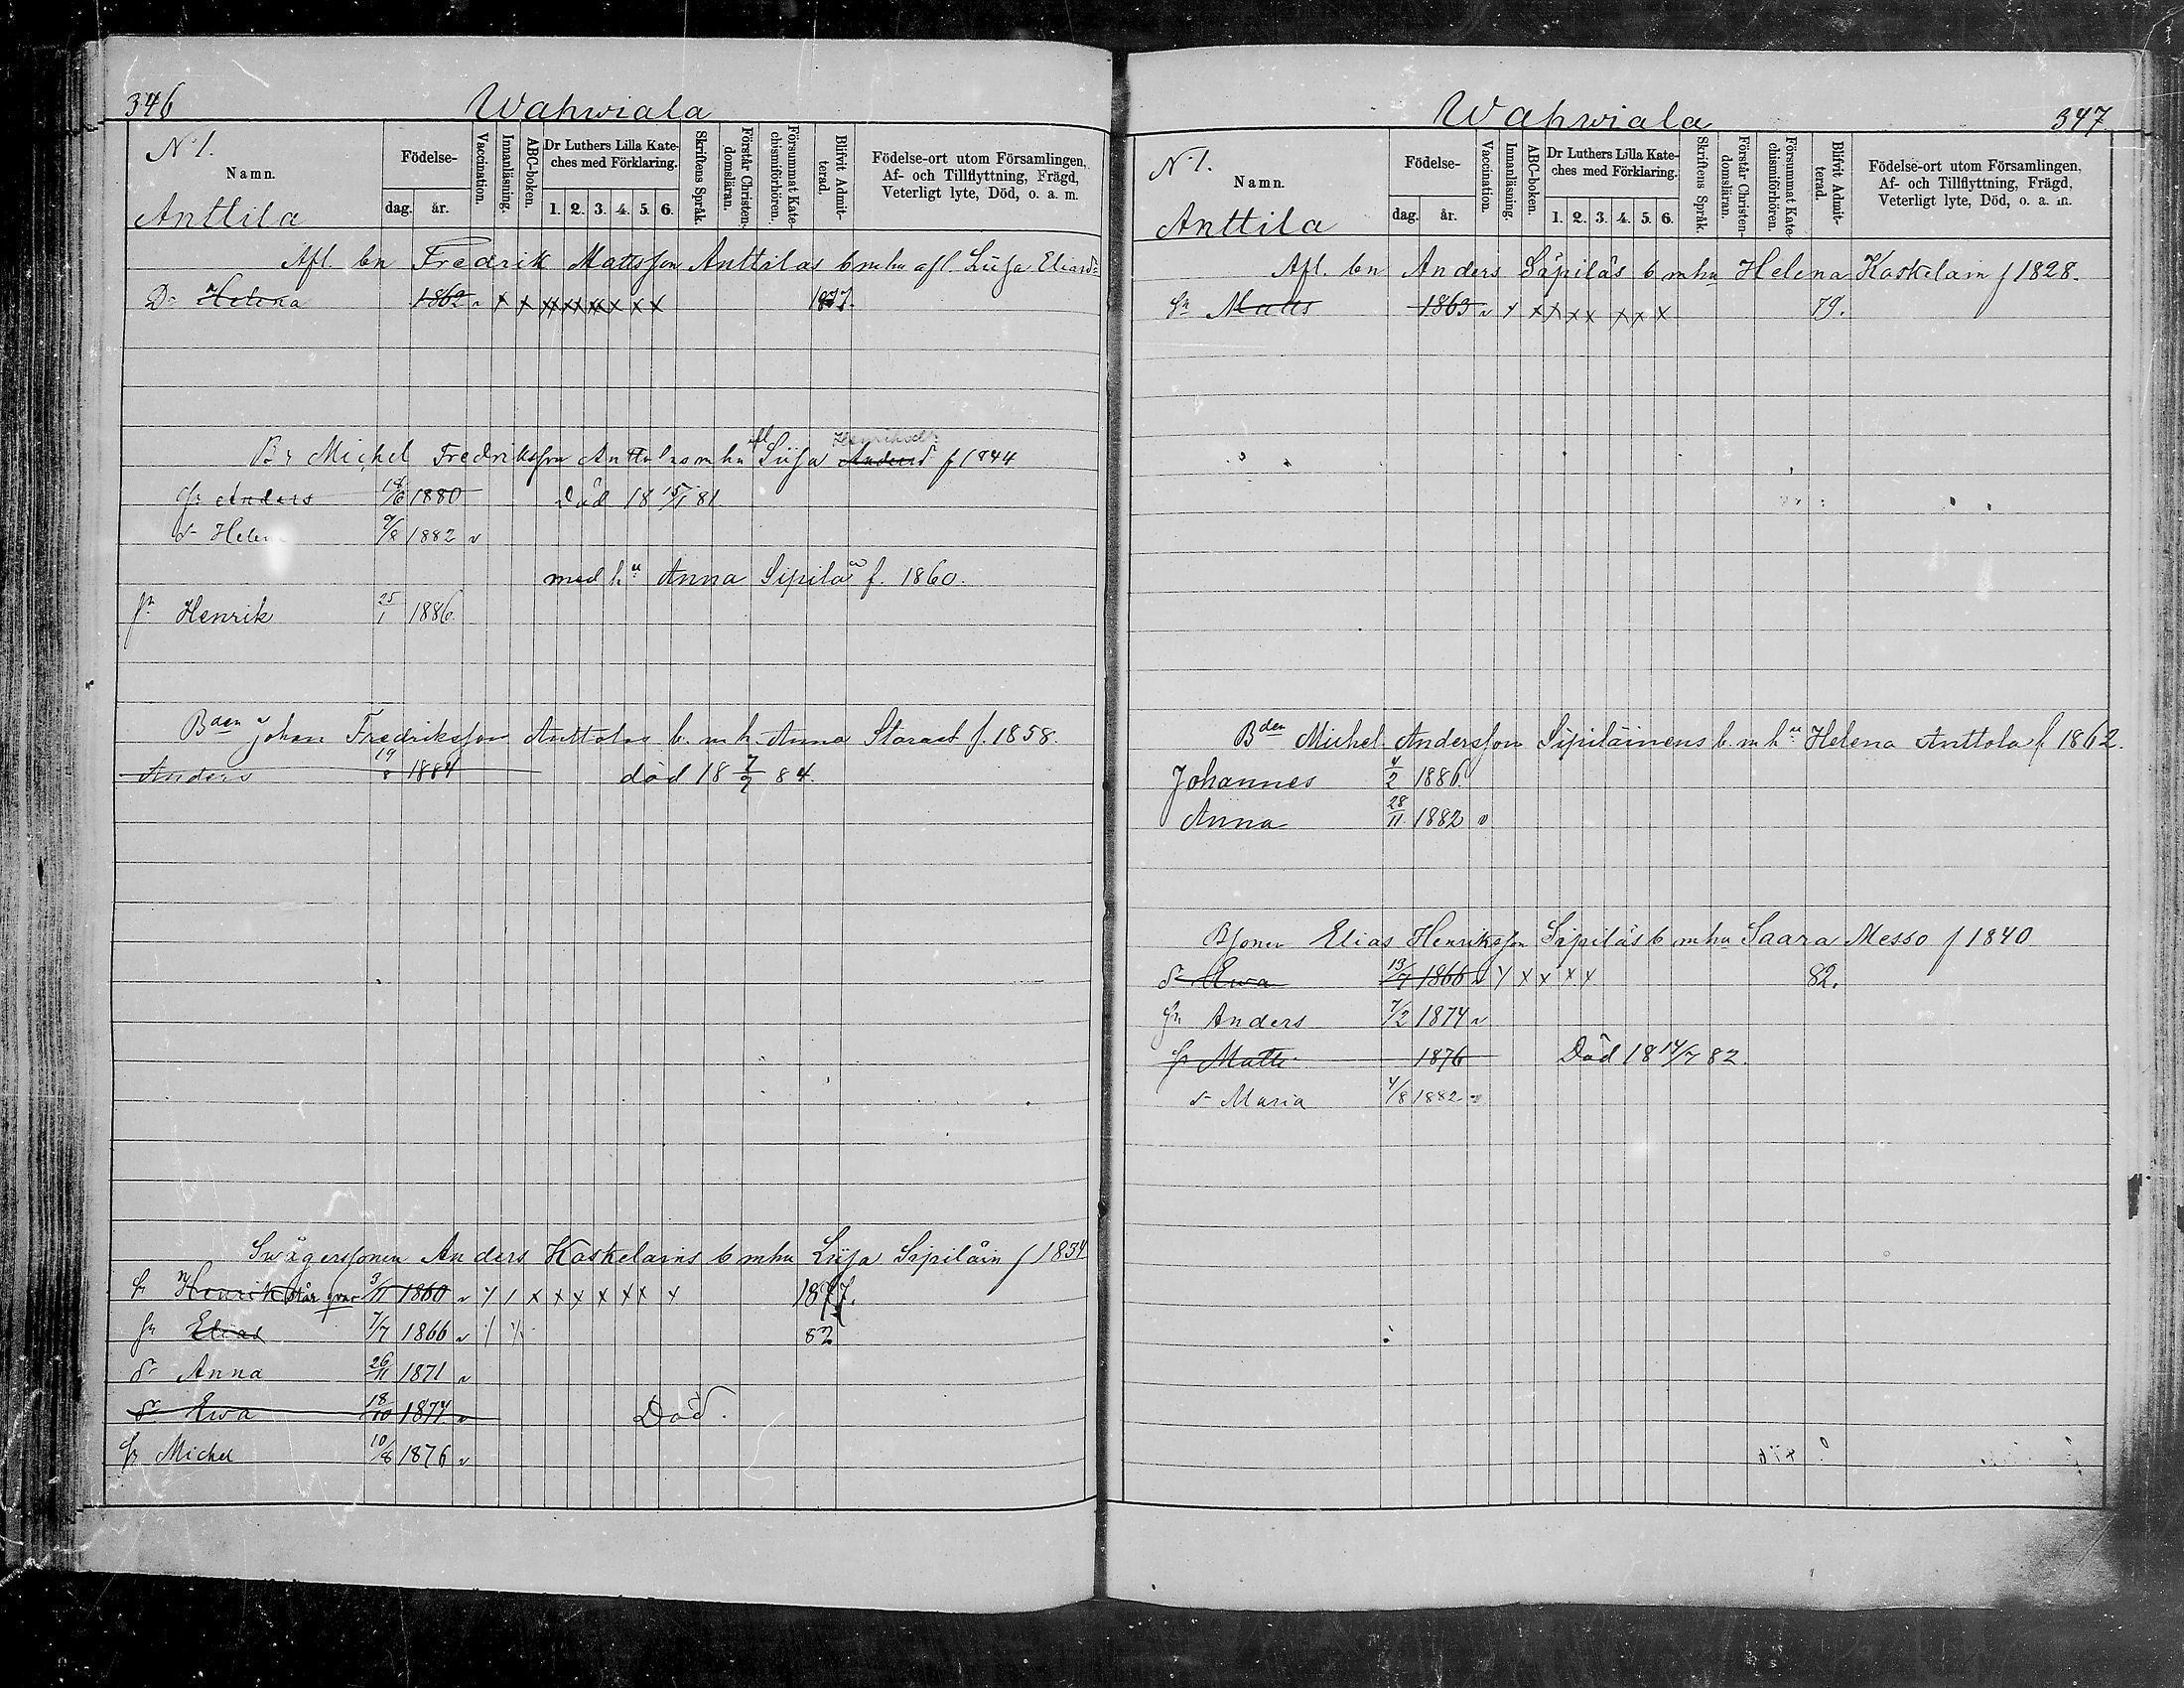 346
Wahwiala
N:1.
Namn.
Anttila
Födelse-
dag. år.
Vaccination.
Innanläsning.
ABC-boken.
Dr Luthers Lilla Kate-
ches med Förklaring.
1. 2. 3. 4. 5. 6.
Skriftens Språk.
Förstår Christen-
domsläran.
Försummat Kate-
chismiförhören.
Blifvit Admit-
terad.
Födelse-ort utom Församlingen,
Af- och Tillflyttning, Frägd,
Veterligt lyte, Död, o. a. m.
Afl. bn Fredrik Mattsson Anttilas b mhu afl. Liisa Eliasdr
Dr Helena 1862 v x x x x x x x x 1877.
Henriksdr
Br Michel Fredriksson Anttolas m hu afl Liisa Andersd f 1844
sn Anders 18/6 1880 Död 18 15/1 81.
dr Helena 9/8 1882 v
med hu Anna Sipilä f. 1860.
sn Henrik 25/1 1886.
Bden Johan Fredriksson Anttolas b. m. h. Anna Starast f. 1858.
Anders 1884 död 18 7/9 84.
Swågerssonen Anders Koskelains b mhu Liisa Sipiläin f 1834
sn Henrik står qvar 3/11 1860 v y / x x x x x x x 1877.
sn Elias 7/7 1866 v 82
dr Anna 26/11 1871 v
dr Ewa 18/10 1874 v Död.
sn Michel 10/8 1876 v
Wahwiala
347.
N:1.
Namn.
Anttila
Födelse-
dag. år.
Vaccination.
Innanläsning.
ABC-boken.
Dr Luthers Lilla Kate-
ches med Förklaring.
1. 2. 3. 4. 5. 6.
Skriftens Språk.
Förstår Christen-
domsläran.
Försummat Kate-
chismiförhören.
Blifvit Admit-
terad.
Födelse-ort utom Församlingen,
Af- och Tillflyttning, Frägd,
Veterligt lyte, Död, o. a. m.
Afl. bn Anders Säpiläs b mhu Helena Koskelain f 1828.
sn Matts 1863 v y x x x x x x x 79.
Bden Michel Andersson Sipiläinens b. m hu Helena Anttola f 1862.
Johannes 4/2 1886.
Anna 28/11 1882 v
Bsonen Elias Henriksson Sipiläs b mhu Saara Messo f 1840
dr Ewa 13/7 1866 v y x x x x 82.
sn Anders 7/2 1874 v
sn Matti 1876 Död 18 14/7 82.
dr Maria 4/8 1882 v